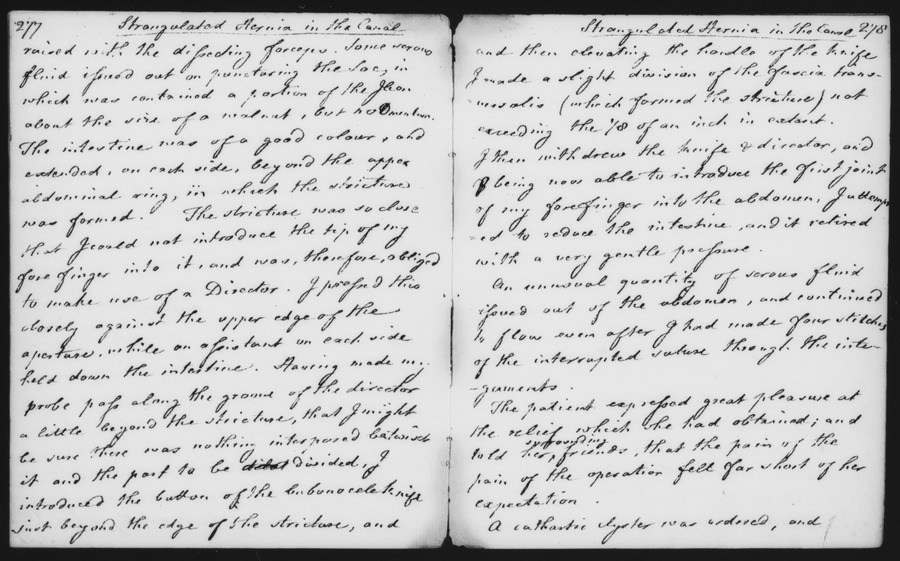 277 Strangulated Hernia in the Canal
raised with the dissecting forceps. Some serous
fluid issued out on puncturing the Sac, in
which was contained a portion of the Ileon
about the size of a walnut, but no Omentum.
The intestine was of a good colour, and
extended, on each side, beyond the upper
abdominal ring, in which the stricture
was formed. The stricture was so close
that I could not introduce the tip of my
fore finger into it, and was, therefore, obliged
to make use of a Director. I pressed this
closely against the upper edge of the
aperture, while an assistant on each side
held down the intestine. Having made my
probe pass along the groove of the director
a little beyond the stricture, that I might
be sure there was nothing interposed betwixt
it and the part to be divided, I
introduced the button of the bubonocele knife
just beyond the edge of the stricture, and
Strangulated Hernia in the Canal 278
and then elevating the handle of the knife
I made a slight division of the fascia trans-
-versalis (which formed the stricture) not
exceeding the 1/8 of an inch in extent.
I then withdrew the knife & director, and
being now able to introduce the first joint
of my fore finger into the abdomen, I attempt
-ed to reduce the intestine, and it retired
with a very gentle pressure.
An unusual quantity of serous fluid
issued out of the abdomen, and continued
to flow even after I had made four stitches
of the interrupted suture through the inte-
-guments.
The patient expressed great pleasure at
the relief which she had obtained; and
told her surrounding friends, that the pain of the
pain of the operation fell far short of her
expectation.
A cathartic clyster was ordered, and